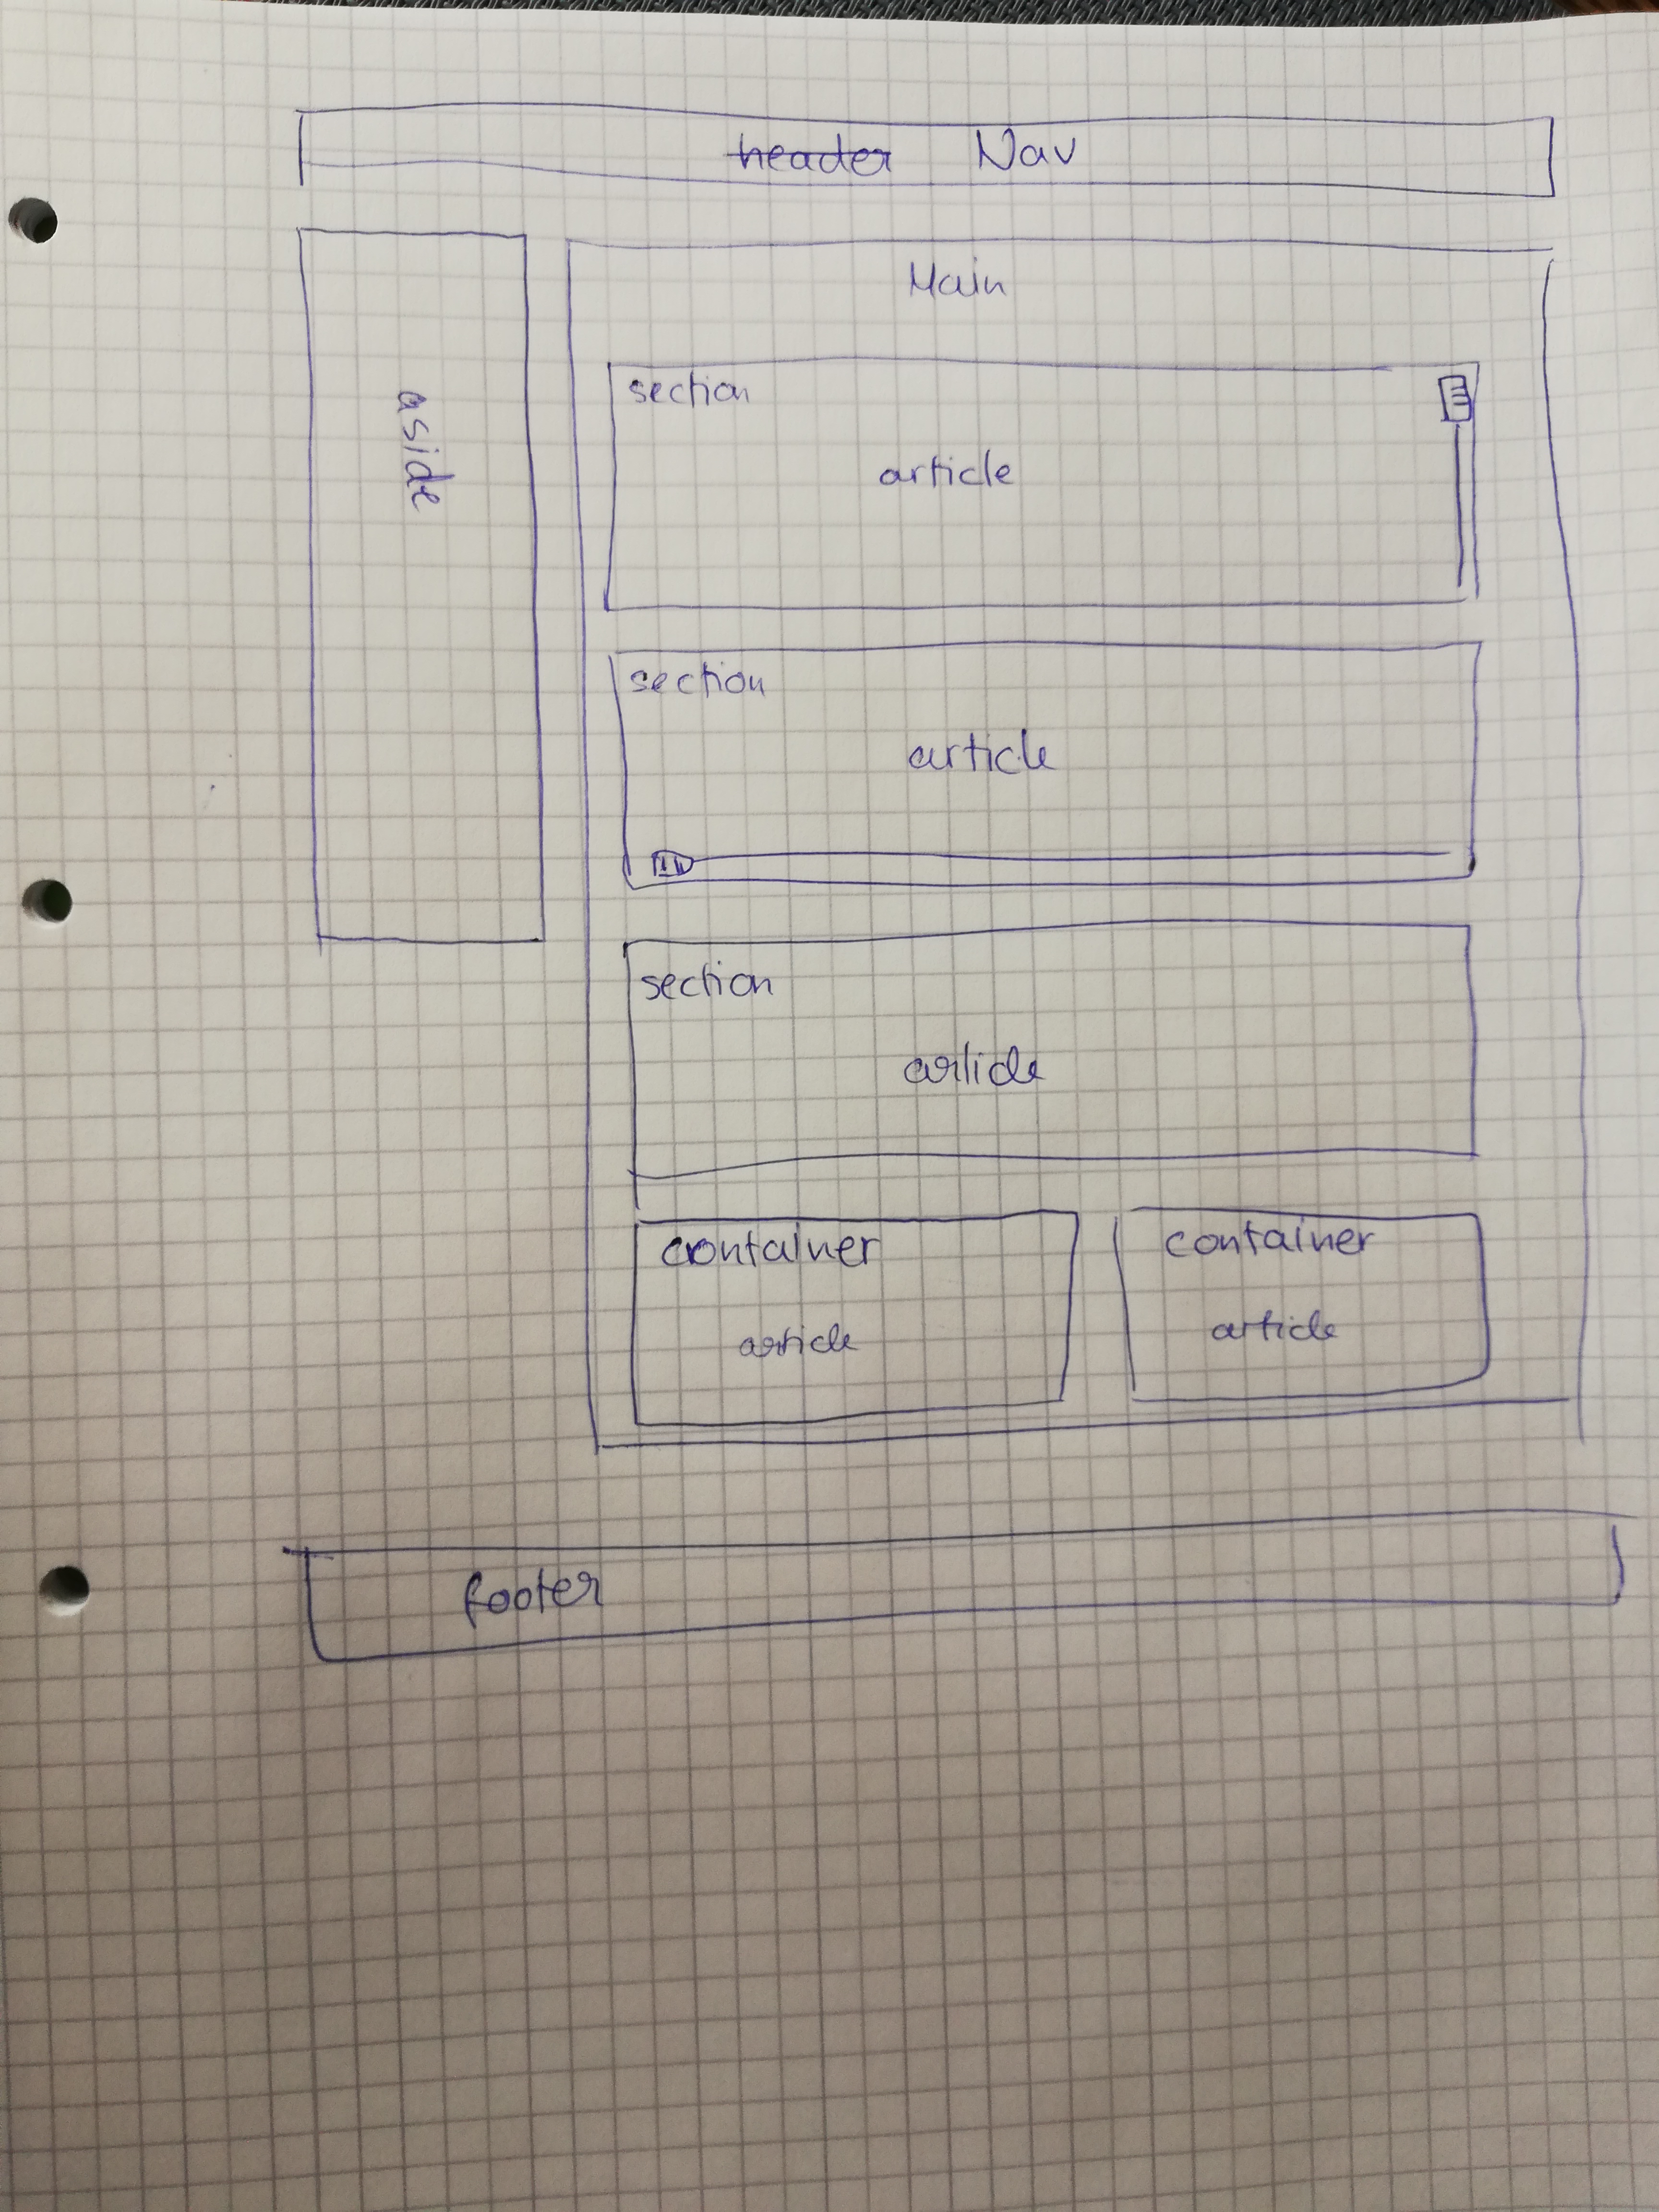 header Nav
Main
aside
section
article
section
article
section
article
container
article
container
article
footer